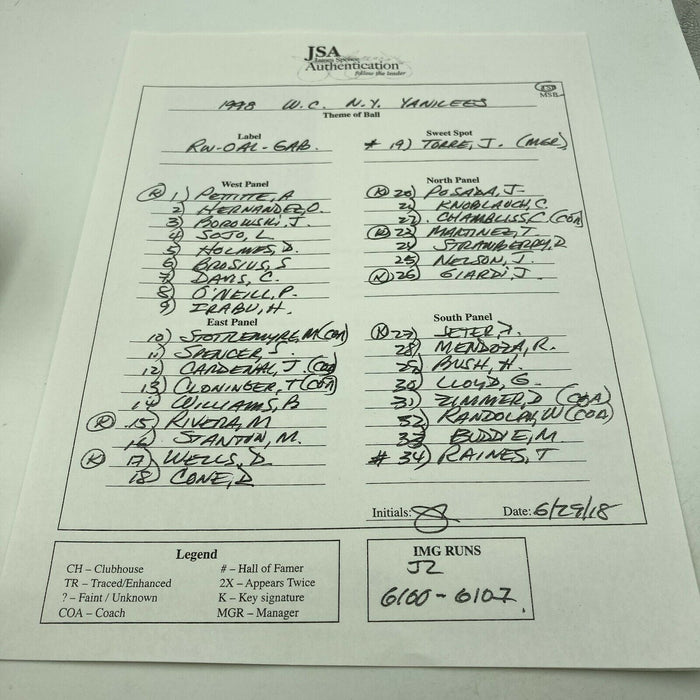 JSA
James Spence
Authentication
follow the leader
JSA
MSB
1998 W.C. N.Y. YANKEES
Theme of Ball
Label
RW-OAL-GAB.
Sweet Spot
# 19) TORRE, J. (MGR)
West Panel
(K) 1) PETTITTE, A
2) HERNANDEZ, O.
3) BOROWSKI, J.
4) SOJO, L.
5) HOLMES, D.
6) BROSIUS, S
7) DAVIS, C.
8) O'NEILL, P.
9) IRABU, H.
East Panel
10) STOTTLEMYRE, M (COA)
11) SPENCER, S.
12) CARDENAL, J. (COA)
13) CLONINGER, T (COA)
14) WILLIAMS, B
(K) 15) RIVERA, M
16) STANTON, M.
(K) 17) WELLS, D
18) CONE, D
North Panel
(K) 20) POSADA, J.
21) KNOBLAUCH, C.
22) CHAMBLISS, C (COA)
(K) 23) MARTINEZ, T.
24) STRAWBERRY, D
25) NELSON, J.
(K) 26) GIARDI, J.
South Panel
(K) 27) JETER, D.
28) MENDOZA, R.
29) BUSH, H.
30) LLOYD, G.
31) ZIMMER, D (COA)
32) RANDOLPH, W (COA)
33) BUDDIE, M
# 34) RAINES, T
Initials:
Date: 6/29/18
Legend
CH – Clubhouse
TR – Traced/Enhanced
? – Faint / Unknown
COA – Coach
# – Hall of Famer
2X – Appears Twice
K – Key signature
MGR – Manager
IMG RUNS
JZ
6100 - 6107